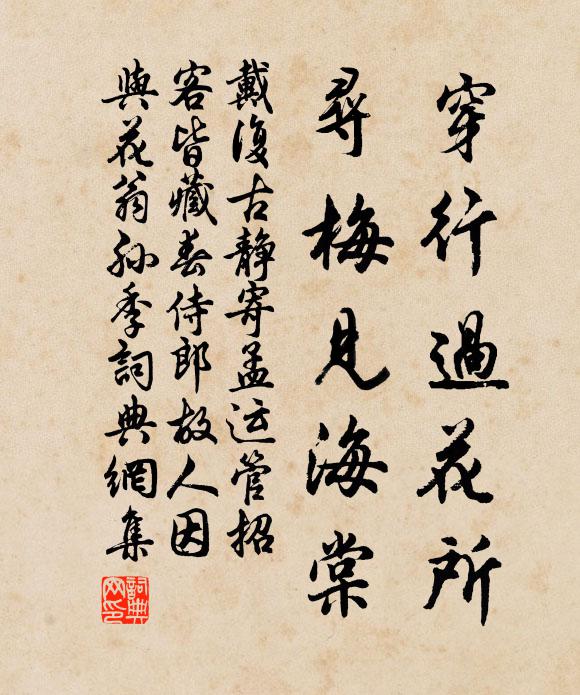 穿行過花所
尋梅見海棠
戴復古靜寄孟运管招
客皆藏春侍郎故人因
與花翁孫季詞典網集
詞典網印